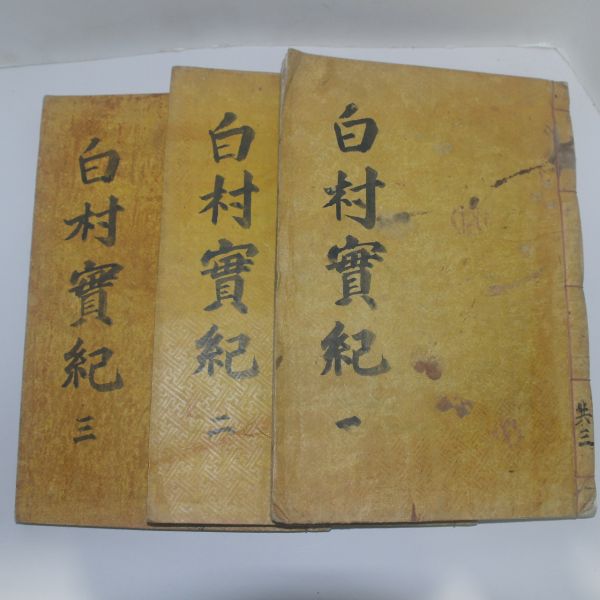 白村實紀 一
共三
白村實紀 二
白村實紀 三